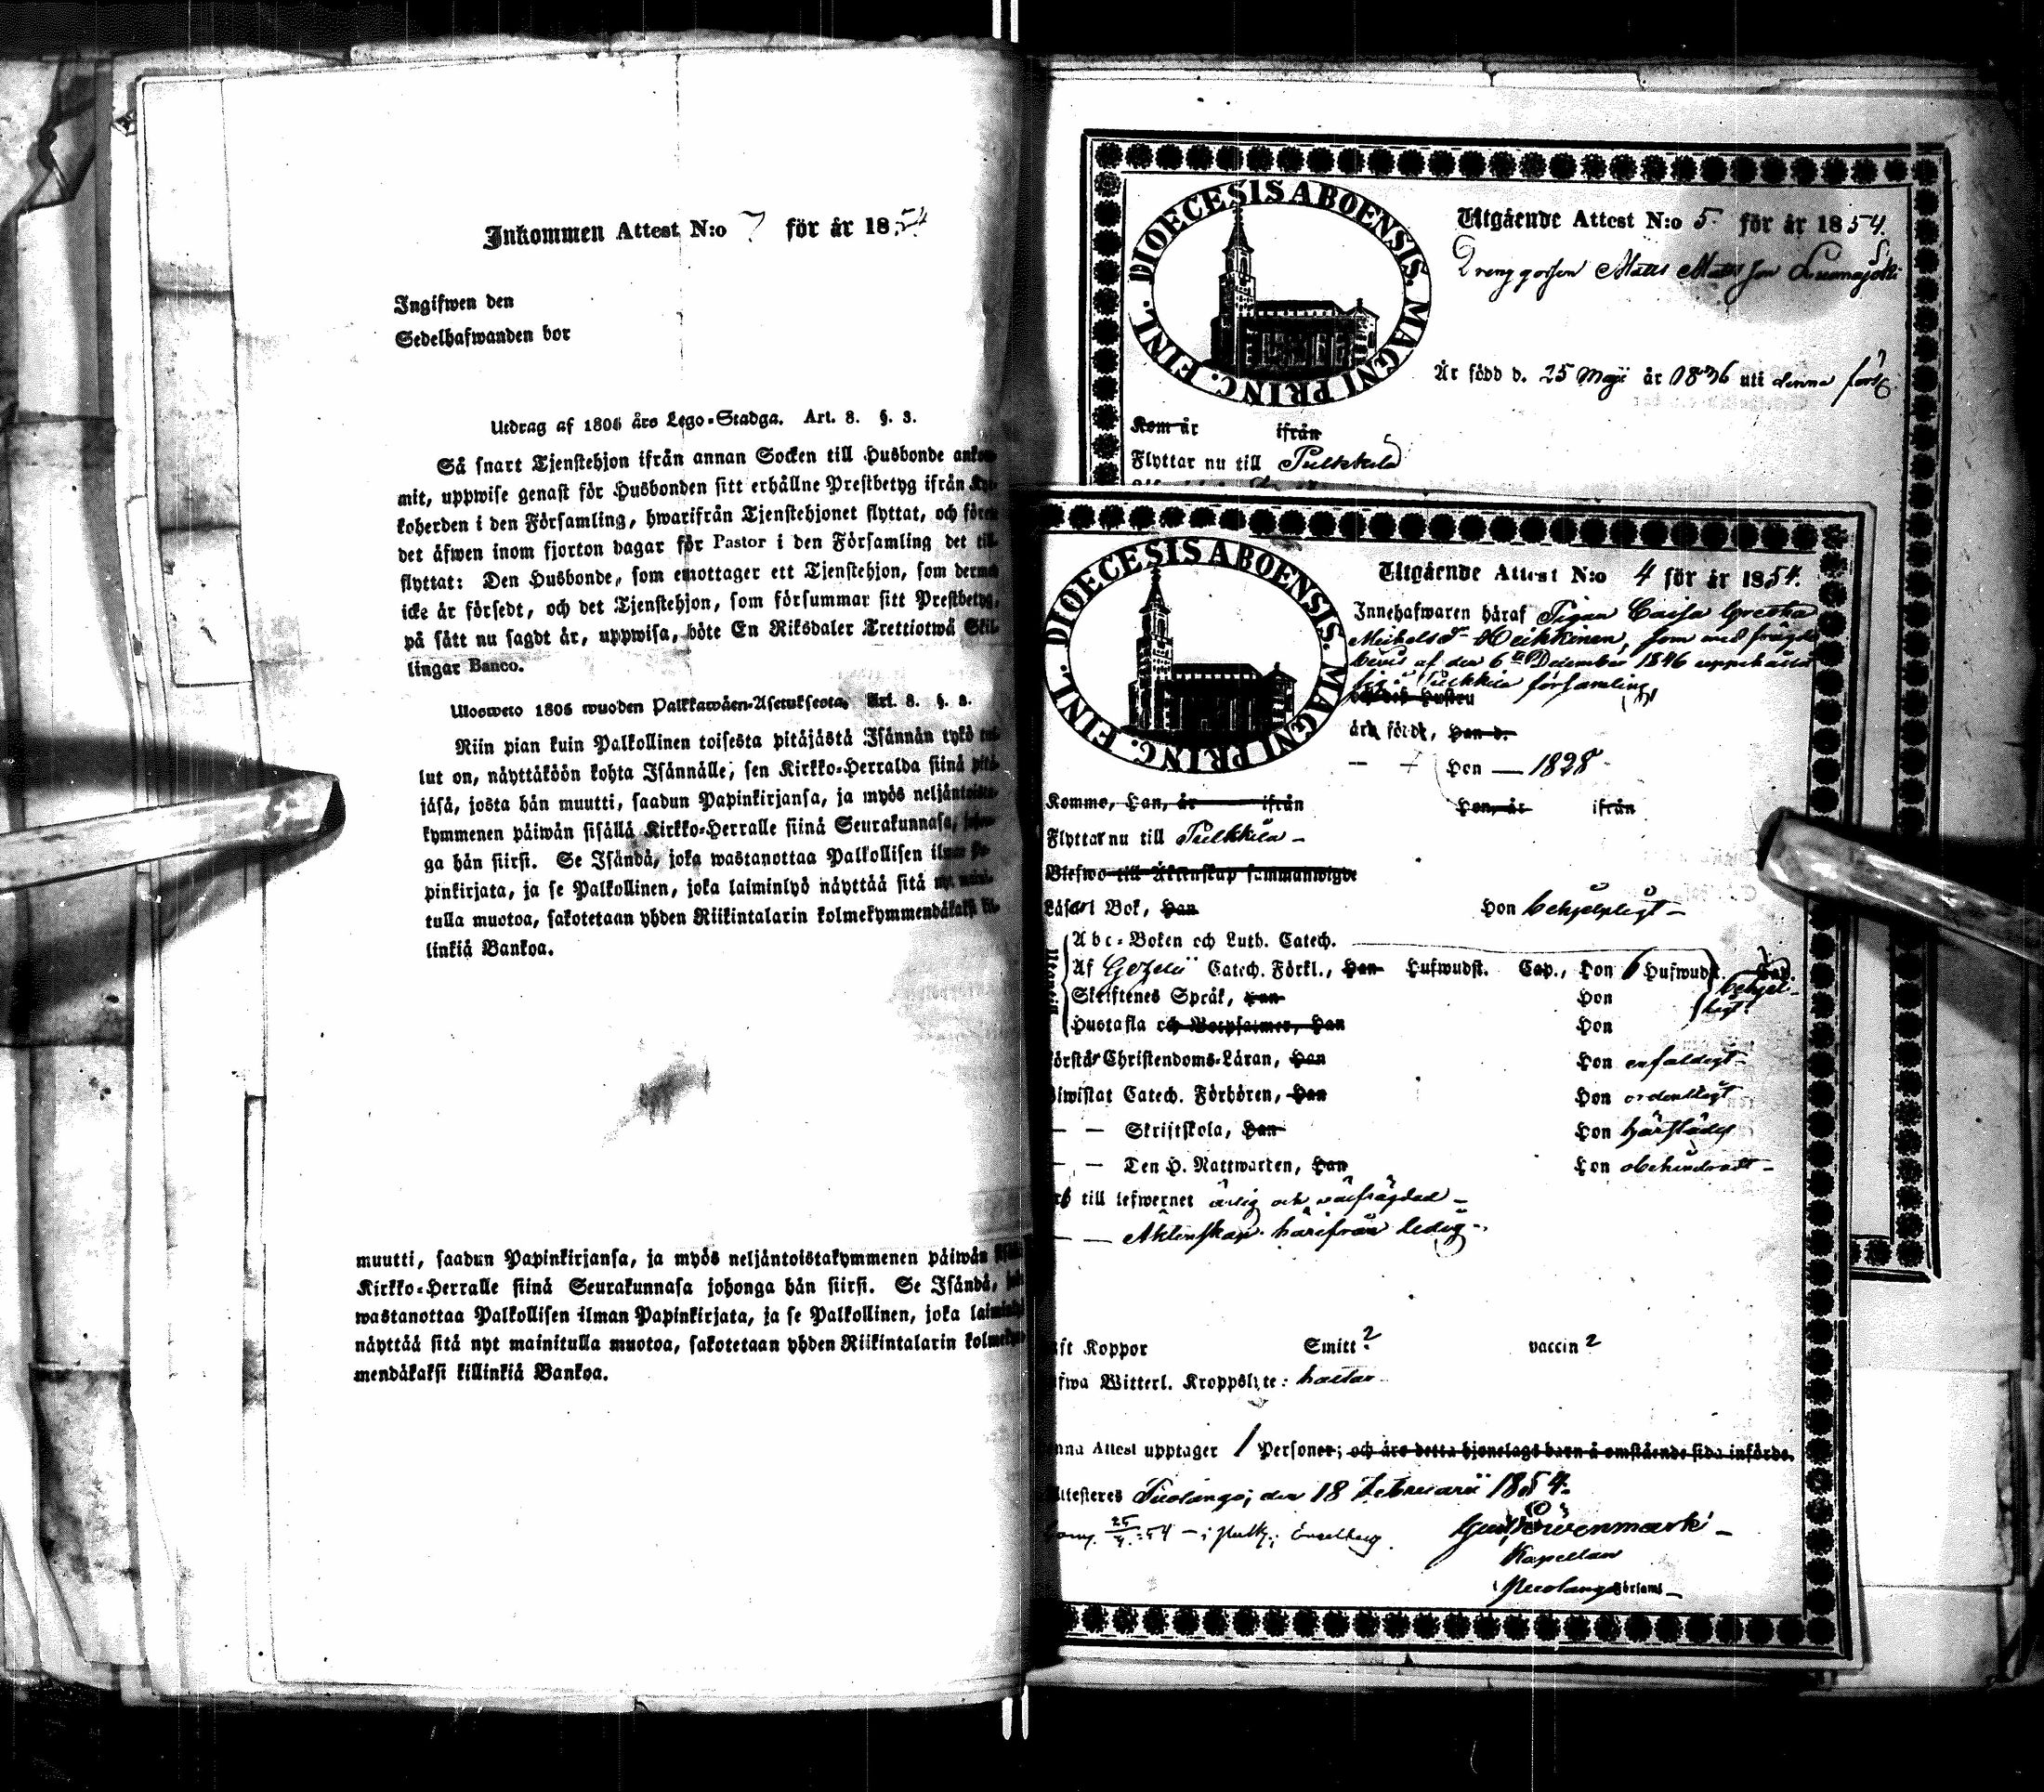 Inkommen Attest N:o 7 för år 1854
Ingifwen den
Sedelhafwanden bor
Utdrag af 1805 års Lego-Stadga. Art. 8. §. 3.
Så snart Tjenstehjon ifrån annan Socken till Husbonde
mit, uppwise genast för Husbonden sitt erhållne Prestbetyg ifrån
koherden i den Församling, hwarifrån Tjenstehjonet flyttat, och
det äfwen inom fjorton dagar för Pastor i den Församling det
flyttat: Den Husbonde, som emottager ett Tjenstehjon, som
icke är försedt, och det Tjenstehjon, som försummar sitt Prestbetyg,
på sätt nu sagdt är, uppwisa, böte En Riksdaler Trettiotwå Skil-
lingar Banco.
Ulosweto 1805 wuoden Palkkawäen-Asetuksesta. Art. 8. §. 3.
Niin pian kuin Palkollinen toisesta pitäjästä Isännän tykö
lut on, näyttäköön kohta Isännälle, sen Kirkko-Herralda siinä
jäsä, josta hän muutti, saadun Papinkirjansa, ja myös
kymmenen päiwän sisällä Kirkko-Herralle siinä Seurakunnasa,
ga hän siirsi. Se Isändä, joka wastanottaa Palkollisen
pinkirjata, ja se Palkollinen, joka laiminlyö näyttää sitä
tulla muotoa, sakotetaan yhden Riikintalarin kolmekymmendäkaksi
linkiä Bankoa.
muutti, saadun Papinkirjansa, ja myös neljäntoistakymmenen päiwän
Kirkko-Herralle siinä Seurakunnasa johonga hän siirsi. Se Isändä,
wastanottaa Palkollisen ilman Papinkirjata, ja se Palkollinen, joka
näyttää sitä nyt mainitulla muotoa, sakotetaan yhden Riikintalarin
mendäkaksi killinkiä Bankoa.
DIOECESIS ABOENSIS. MAGNI PRINC. FINL.
Utgående Attest N:o 5 för år 1854.
Drenggossen Matts Matsson
Är född d. 25 Maji år 1836 uti denna förs
Kom år ifrån
Flyttar nu till Pulkkila
DIOECESIS ABOENSIS. MAGNI PRINC. FINL.
Utgående Attest N:o 4 för år 1854.
Innehafwaren häraf Pigan Caisa Greta
Michelsdr Heikkinen, som med frägde
bevis af den 6te December 1846 uppehållit
sig i Pulkkila församling
och dess Hustru
födt, Han d.
— Hon — 1828
Komme, Han, år ifrån Hon, år ifrån
Flyttar nu till Pulkkila —
Blefwo till Äktenskap sammanwigde
Bok, Han Hon behjelpligt —
Utantill
Abc-Boken och Luth. Catech.
Af Gezelii Catech. Förkl., Han Hufwudst. Cap., Hon 6 Hufwudst. Cap.
Skriftenes Språk, Han Hon
Hustafla och Botpsalmer, Han Hon
behjelp-
ligt
Christendoms-Läran, Han Hon enfaldigt —
Catech. Förhören, Han Hon ordentligt
— — Skriftskola, Han Hon härstädes
— — Den H. Nattwarden, Han Hon obehindradt —
till lefwernet ärlig och välfrägdad —
— — Äktenskap härifrån ledig —
Koppor Smitt? vaccin?
Witterl. Kroppslyte: haltar
Attest upptager 1 Personer; och äro detta hjonelags barn å omstående sida införde.
Attesteres Piolango, den 18 Februarii 1854.
25/4 54
Kapellan